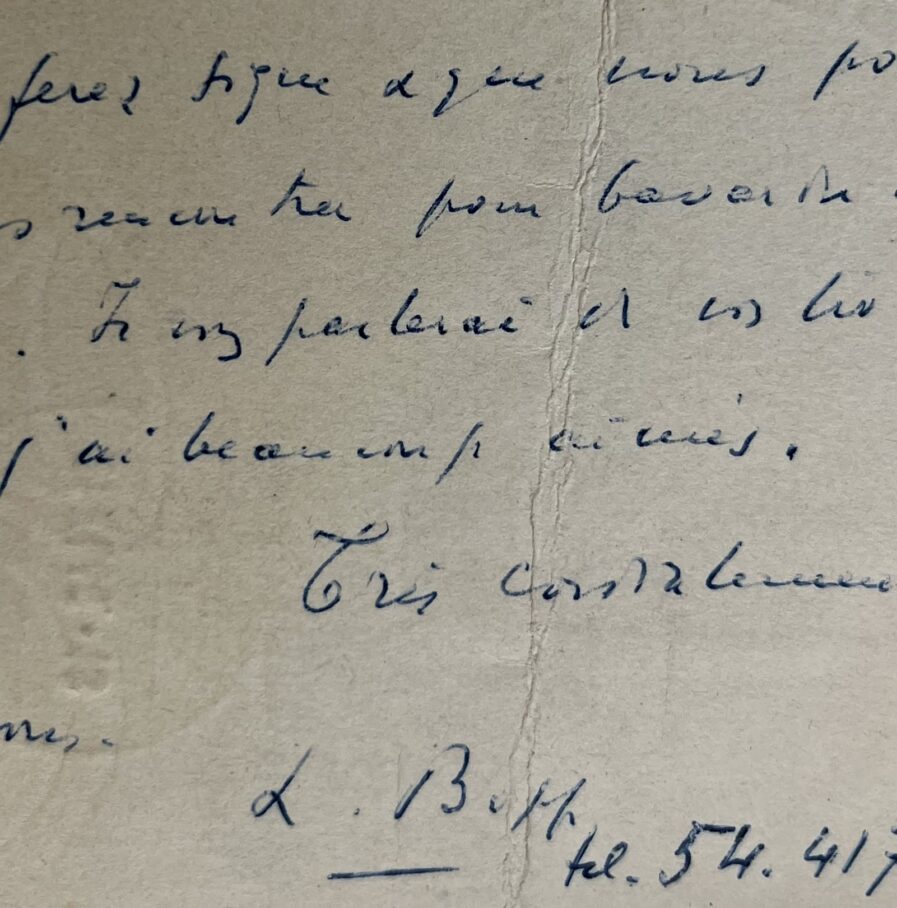 ferez signe & que nous po
s rencontrer pour bavarder
. Je vs parlerai de vos liv
j'ai beaucoup aimés.
Très cordialemen
L. Bopp
tél. 54.417